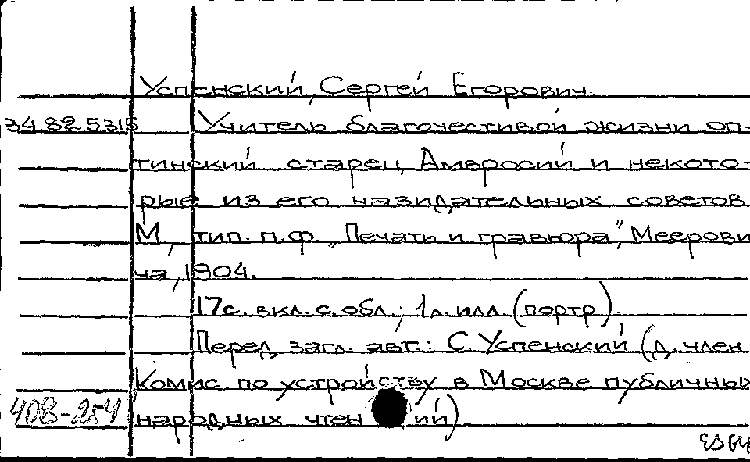 Успенский, Сергей Егорович.
34.82.5315 Учитель благочестивой жизни оп-
тинский старец Амвросий и некото-
рые из его назидательных советов
М., тип. п.ф. „Печать и гравюра", Меерови-
ча, 1904.
17с. вкл. с. обл.; 1л. илл. (портр)
Перед загл. авт.: С. Успенский (д. член
Комис. по устройству в Москве публичных
408-254 народных чтен ий)